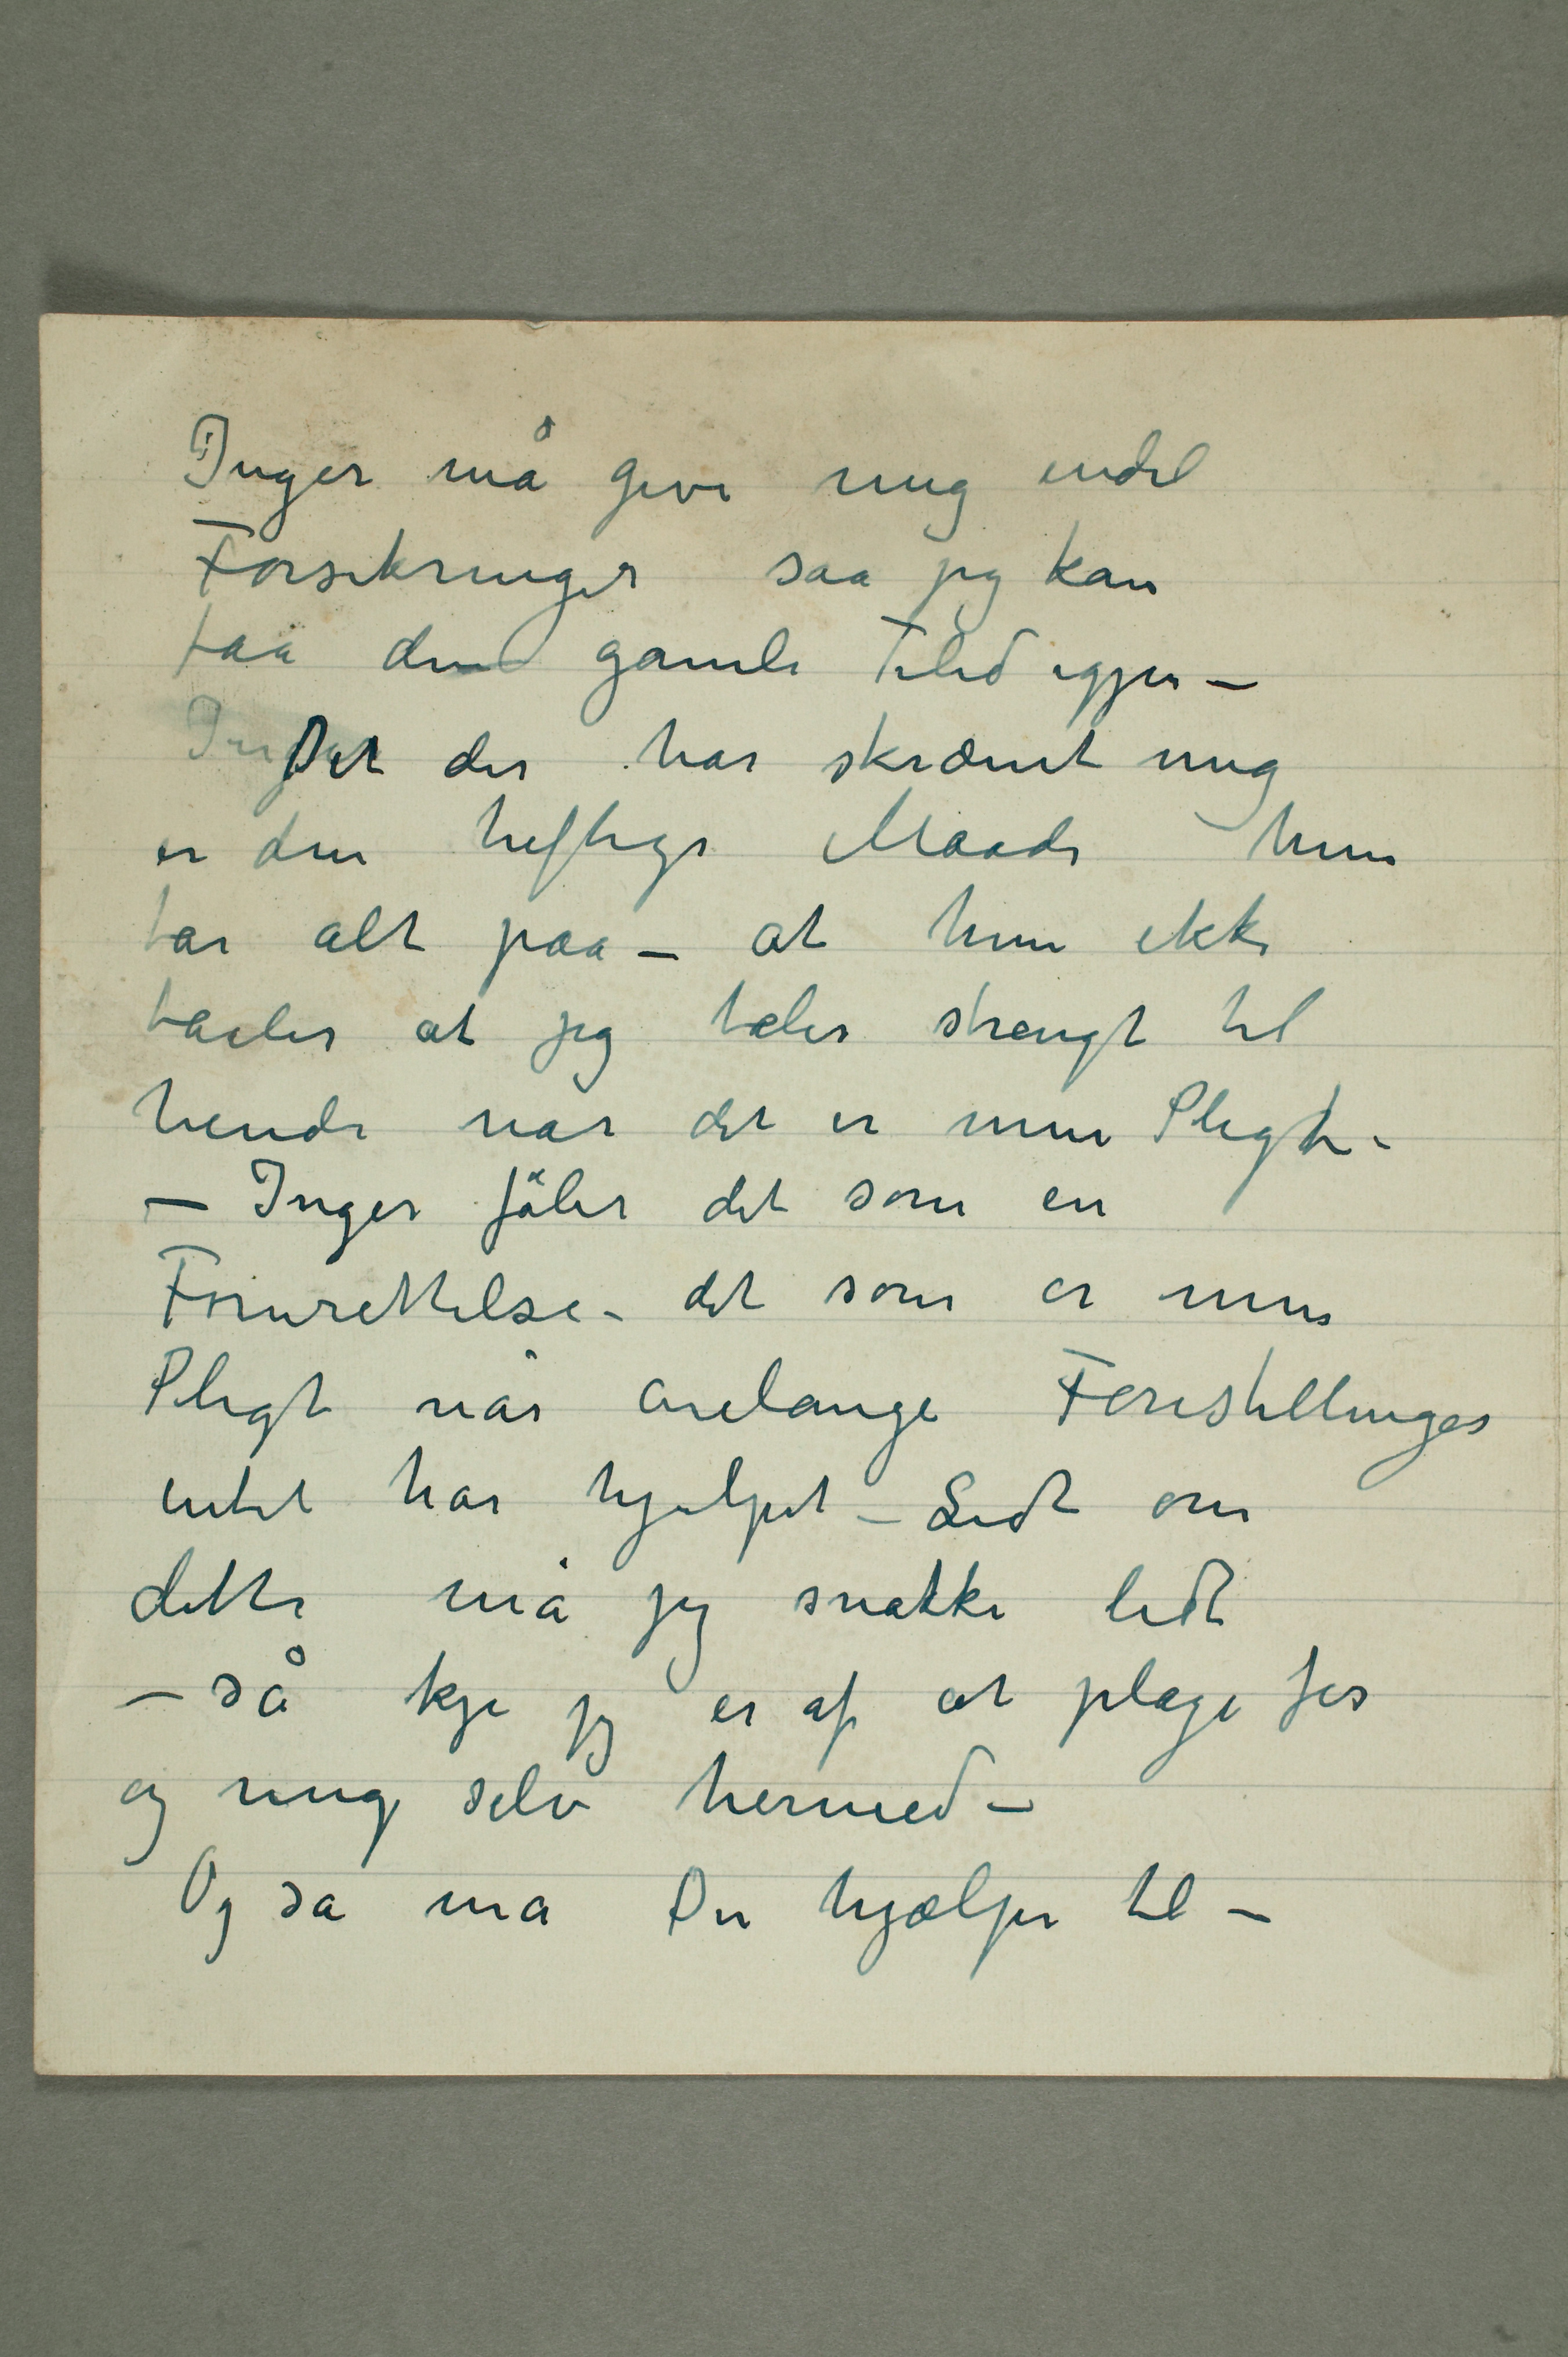 Inger må give mig endel
Forsikringer saa jeg kan
faa den gamle Tilid igjen –
Det der har skræmt mig
er den heftige Maade hun
tar alt paa – at hun ikke
taaler at jeg taler strengt til
hende når det er min Pligt. –
– Inger föler det som en
Forurettelse – det som er min
Pligt når årelange Forestillinger
intet har hjelpet – Lidt om
dette må jeg snakke lidt
– så kje jeg er af at plage jer
og mig selv hermed –
Og så må Du hjælpe til –